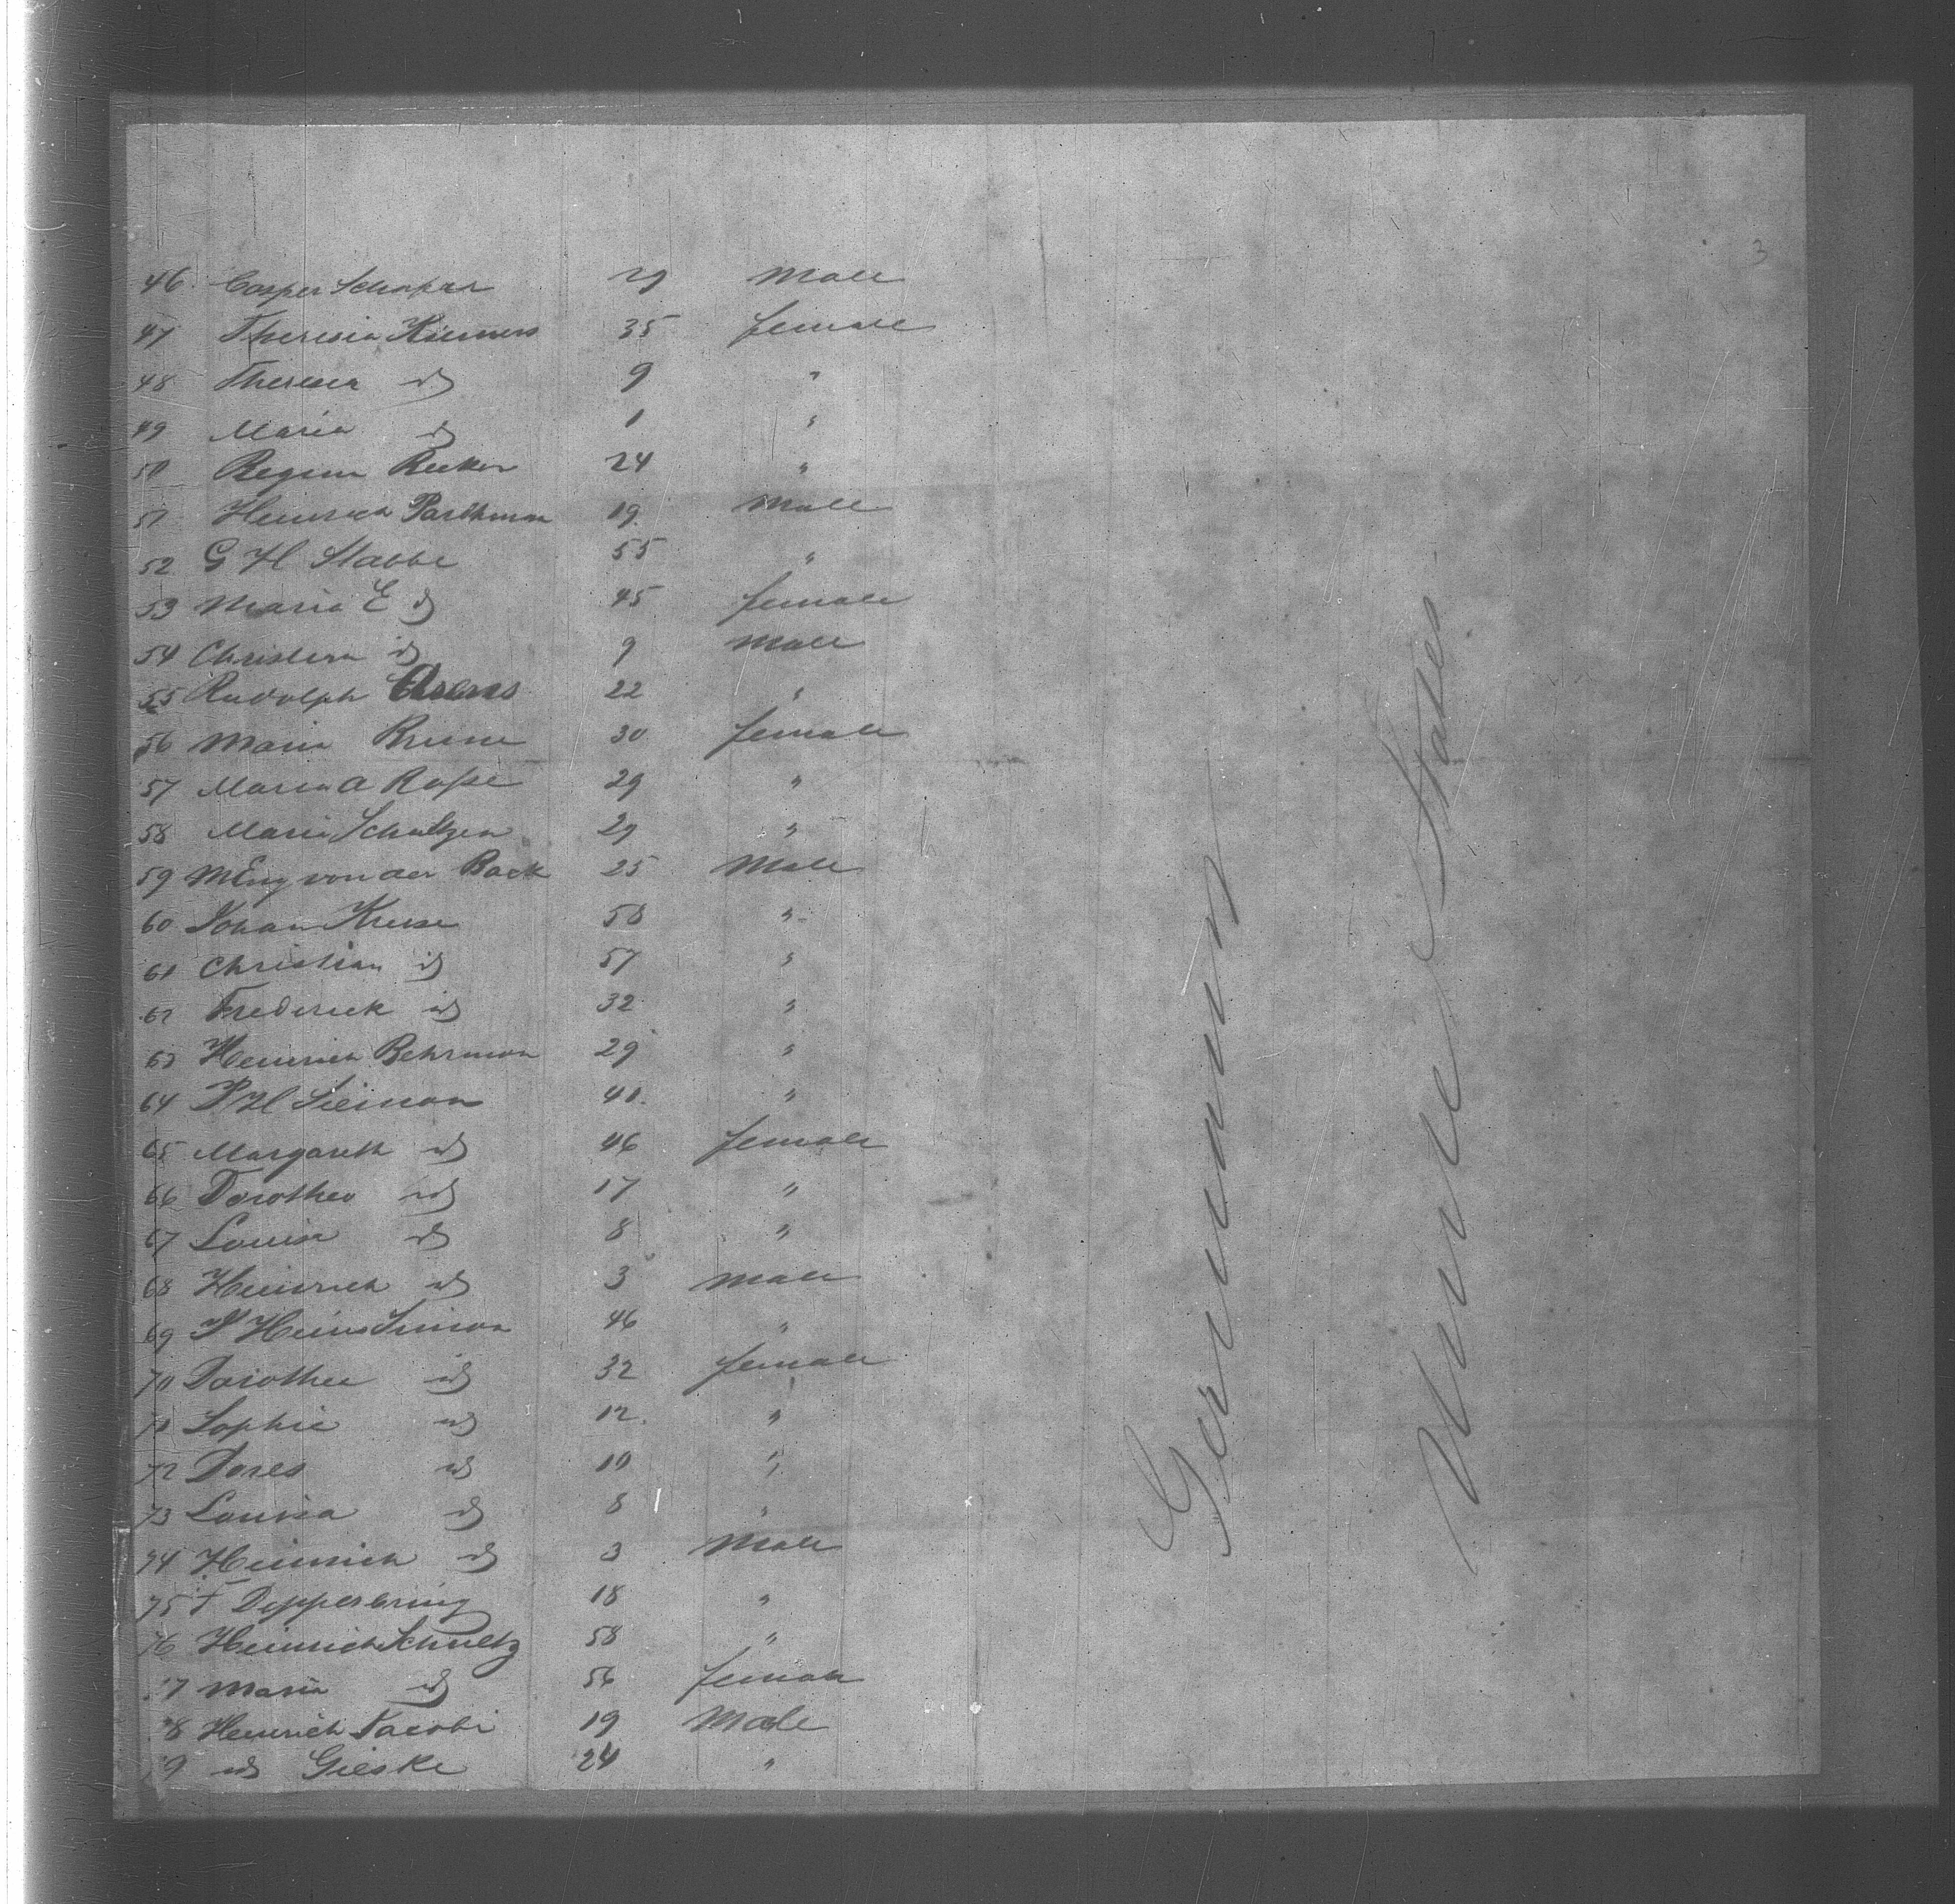 3
46 Casper Schaper 29 Male
47 Theresia Kiemers 35 female
48 Theresia id 9 "
49 Maria id 1 "
50 Regina Recker 24 "
51 Heinrich 19 Male
52 G H Stabbe 55 "
53 Maria E id 45 female
54 Christian id 9 Male
55 Rudolph Arens 22 "
56 Maria Brune 30 female
57 Maria A Rosse 29 "
58 Maria Schultzen 29 "
59 von der Back 25 Male
60 Johan Kruse 58 "
61 Christian id 57 "
62 Frederick id 32 "
63 Heinrich Behrman 29 "
64 H Sieman 40 "
65 Margareth id 46 female
66 Dorothea id 17 "
67 Louisa id 8 "
68 Heinrich id 3 Male
69 Heinr Simon 46 "
70 Dorothee id 32 female
71 Sophie id 12 "
72 Dores id 10 "
73 Louisa id 8 "
74 Heinrich id 3 Male
75 F Depperbring 18 "
76 Heinrich Schultz 58 "
77 Maria id 56 female
78 Heinrich Jacobi 19 Male
79 id Gieske 24 "
Germany
United States